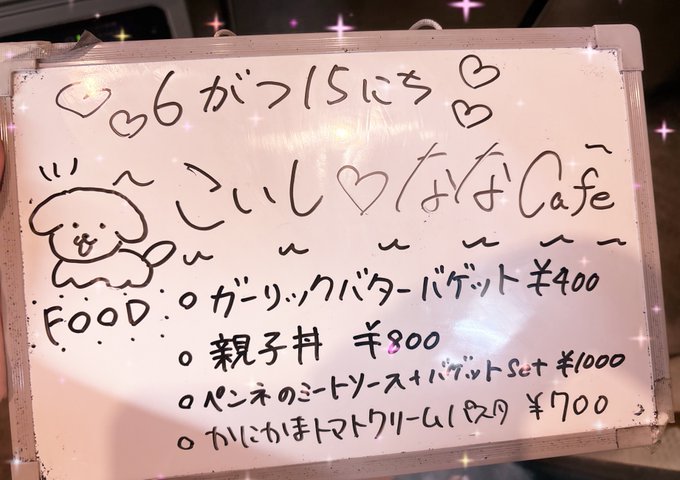 ♡♡6がつ15にち♡♡
こいし♡ななCafe
FOOD
○ガーリックバターバゲット ¥400
○親子丼 ¥800
○ペンネのミートソース+バゲットSet ¥1000
○かにかまトマトクリームパスタ ¥700